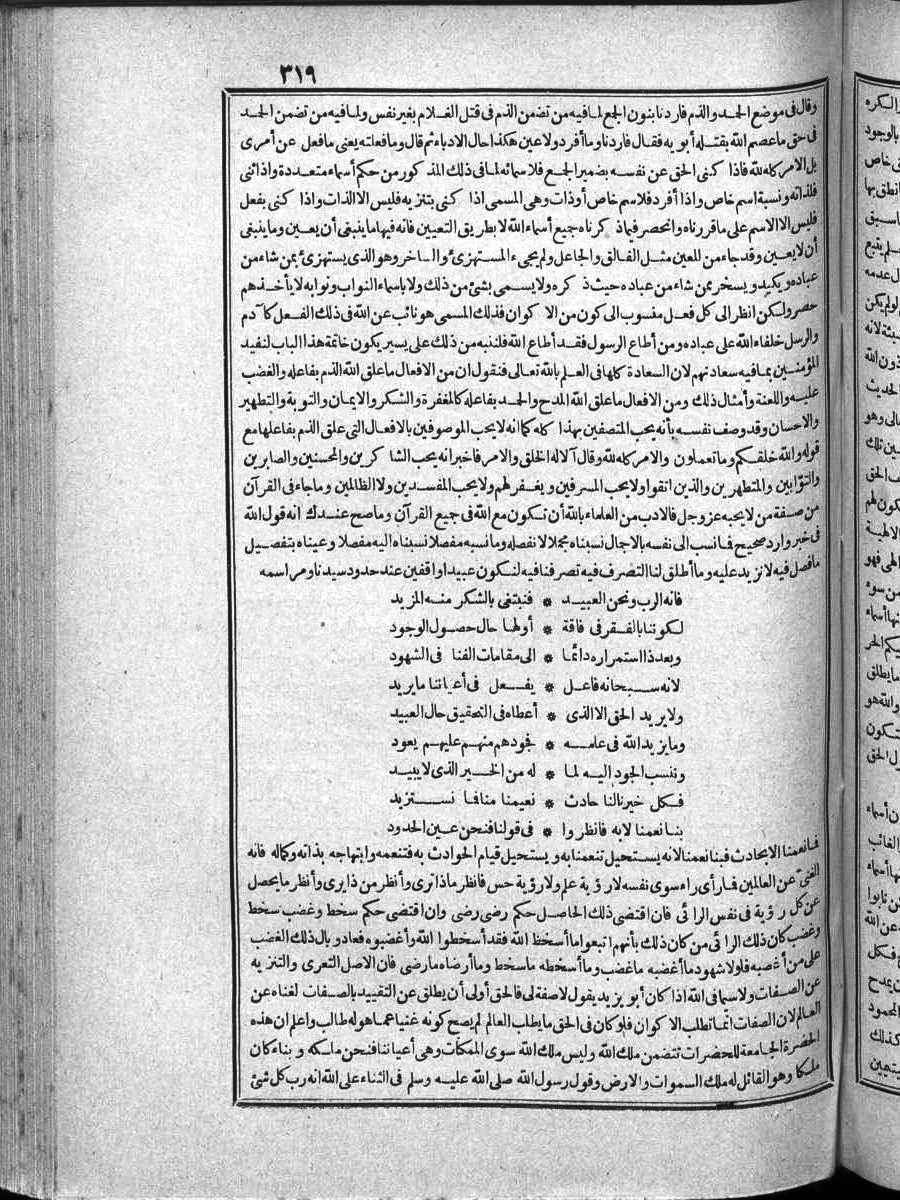 ٣١٩
وقال فى موضع الحد والذم فاردنا بنون الجمع لما فيه من تضمن الذم فى قتل الغلام بغير نفس ولما فيه من تضمن الحد
فى حق ما عصم الله بقتله أبويه فقال فاردنا وما أفرد ولا عين هكذا حال الادباء ثم قال وما فعلته يعنى ما فعل عن أمرى
بل الامر كله لله فاذا كنى الحق عن نفسه بضمير الجمع فلاسمائه لما فى ذلك المذكور من حكم أسماء متعددة واذا ثنى
فلذاته ونسبة اسم خاص واذا أفرد فلاسم خاص أو ذات وهى المسمى اذا كنى بتنزيه فليس الا الذات واذا كنى بفعل
فليس الا الاسم على ما قررناه وانحصر فيما ذكرناه جميع أسماء الله لا بطريق التعيين فانه فيها ما ينبغى أن يعين وما ينبغى
أن لا يعين وقد جاء من المعين مثل الفالق والجاعل ولم يجىء المستهزئ والساخر وهو الذى يستهزئ بمن شاء من
عباده ويكيد ويسخر ممن شاء من عباده حيث ذكره ولا يسمى بشئ من ذلك ولا باسماء النواب ونوابه لا يأخذهم
حصر ولكن انظر الى كل فعل منسوب الى كون من الاكوان فذلك المسمى هو نائب عن الله فى ذلك الفعل كا دم
والرسل خلفاء الله على عباده ومن أطاع الرسول فقد أطاع الله فلننبه من ذلك على يسير يكون خاتمة هذا الباب لنفيد
المؤمنين بما فيه سعادتهم لان السعادة كلها فى العلم بالله تعالى فنقول ان من الافعال ما علق الله الذم بفاعله والغضب
عليه واللعنة وأمثال ذلك ومن الافعال ما علق الله المدح والحمد بفاعله كالمغفرة والشكر والايمان والتوبة والتطهير
والاحسان وقد وصف نفسه بأنه يحب المتصفين بهذا كله كما انه لا يحب الموصوفين بالافعال التى علق الذم بفاعلها مع
قوله والله خلقكم وما تعملون والامر كله لله وقال ألا له الخلق والامر فاخبر انه يحب الشاكرين والمحسنين والصابرين
والتوّابين والمتطهرين والذين اتقوا ولا يحب المسرفين ويغفر لهم ولا يحب المفسدين ولا الظالمين وما جاء فى القرآن
من صفة من لا يحبه عز وجل فالادب من العلماء بالله أن تكون مع الله فى جميع القرآن وما صح عندك انه قول الله
فى خبر وارد صحيح فما نسب الى نفسه بالاجمال نسبناه مجملا لا نفصله وما نسبه مفصلا نسبناه اليه مفصلا وعيناه بتفصيل
ما فصل فيه لا نزيد عليه وما أطلق لنا التصرف فيه تصرفنا فيه لنكون عبيدا واقفين عند حدود سيدنا ومراسمه
فانه الرب ونحن العبيد * فنبتغى بالشكر منه المزيد
لكوننا بالفقر فى فاقة * أولها حال حصول الوجود
وبعد ذا استمراره دائما * الى مقامات الفنا فى الشهود
لانه سبحانه فاعل * يفعل فى أعياننا ما يريد
ولا يريد الحق الا الذى * أعطاه فى التحقيق حال العبيد
وما يزيد الله فى علمه * فجودهم منهم عليهم يعود
وننسب الجود اليه لما * له من الخير الذى لا يبيد
فكل خير نالنا حادث * نعيمنا منا فما نستزيد
بنا نعمنا لا به فانظروا * فى قولنا فنحن عين الحدود
فما نعمنا الا بحادث فبنا نعمنا لانه يستحيل تنعمنا به ويستحيل قيام الحوادث به فتنعمه وابتهاجه بذاته وكماله فانه
الغنىّ عن العالمين فما رأى راء سوى نفسه لا رؤية علم ولا رؤية حس فانظر ماذا ترى وأنظر من ذا يرى وأنظر ما يحصل
عن كل رؤية فى نفس الرائى فان اقتضى ذلك الحاصل حكم رضى رضى وان اقتضى حكم سخط وغضب سخط
وغضب كان ذلك الرائى من كان ذلك بأنهم اتبعوا ما أسخط الله فقد أسخطوا الله وأغضبوه فعاد وبال ذلك الغضب
على من أغضبه فلولا شهود ما أغضبه ما غضب وما أسخطه ما سخط وما أرضاه ما رضى فان الاصل التعرى والتنزيه
عن الصفات ولا سيما فى الله اذا كان أبو يزيد يقول لا صفة لى فالحق أولى أن يطلق عن التقييد بالصفات لغناه عن
العالم لان الصفات انما تطلب الاكوان فلو كان فى الحق ما يطلب العالم لم يصح كونه غنيا عما هو له طالب واعلم ان هذه
الحضرة الجامعة للحضرات تتضمن ملك الله وليس ملك الله سوى الممكنات وهى أعياننا فنحن ملكه وبنا كان
ملكا وهو القائل له ملك السموات والارض وقول رسول الله صلى الله عليه وسلم فى الثناء على الله انه رب كل شئ